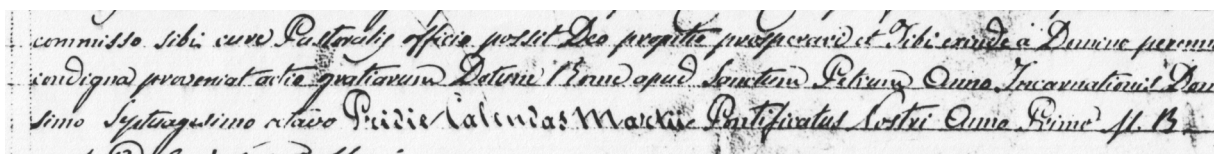 commisso sibi cure Pastoralis officio possit Deo propitio prosperari et Tibi exinde à Domino perennis
condigna proveniat actio gratiarum Datum Rome apud Sanctum Petrum Anno Incarnationis Dom
simo Septuagesimo octavo Pridie Calendas Martii Pontificatus Nostri Anno Primo